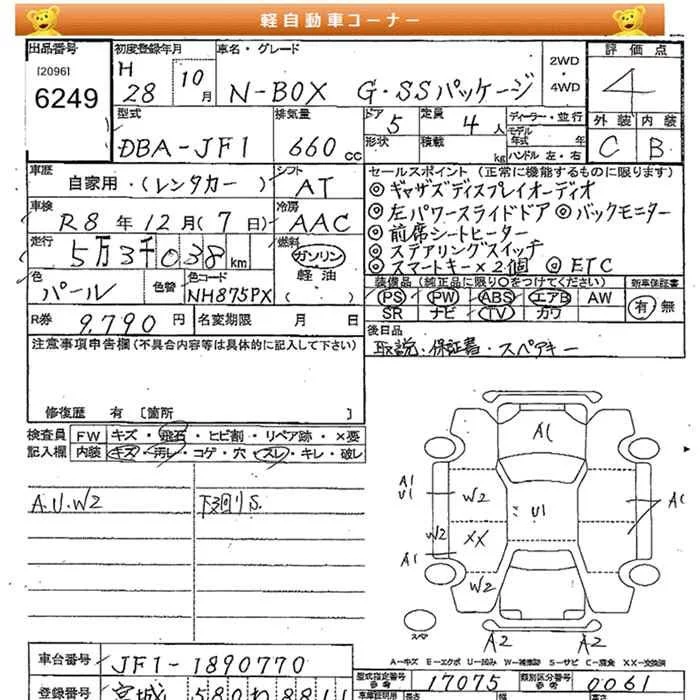 軽自動車コーナー
出品番号
[2096]
6249
初度登録年月
H
28
10
月
車名・グレード
N-BOX G・SSパッケージ
2WD
・
4WD
評価点
4
外装 内装
C B
型式
DBA-JF1
排気量
660 cc
ドア
5
定員
4 人
形状
積載
kg
ディーラー・並行
モデル
年式 年
ハンドル 左・右
車歴
自家用・(レンタカー )
シフト
AT
車検
R8 年 12 月(7 日)
冷房
AAC
走行
5万3千038 km
燃料
ガソリン
軽油
( )
色
パール
色替
色コード
NH875PX
R券
9,790 円
名変期限 月 日
セールスポイント (正常に機能するものに限ります)
◎ ギャザズディスプレイオーディオ
◎ 左パワースライドドア ◎ バックモニター
◎ 前席シートヒーター
◎ ステアリングスイッチ
◎ スマートキー×2個 ◎ ETC
装備品 (純正品に限り○をつけてください)
PS PW ABS エアB AW
SR ナビ TV カワ
新車保証書
有・無
後日品
取説・保証書・スペアキー
注意事項申告欄(不具合内容等は具体的に記入して下さい)
修復歴 有 [箇所 ]
検査員
記入欄
FW キズ・飛石・ヒビ割・リペア跡・×要
内装 キズ・汚レ・コゲ・穴・スレ・キレ・破レ
A.U.W2
下回りS.
A1
A1
U1
W2
U1
A1
W2
XX
A1
W2
A2 A2
スペア
A-キズ E-エクボ U-凹み W-補修跡 S-サビ C-腐食 XX-交換済
車台番号
JF1-1890770
登録番号
宮城 580
型式指定番号
参考
17075
類別区分番号
参考
0061